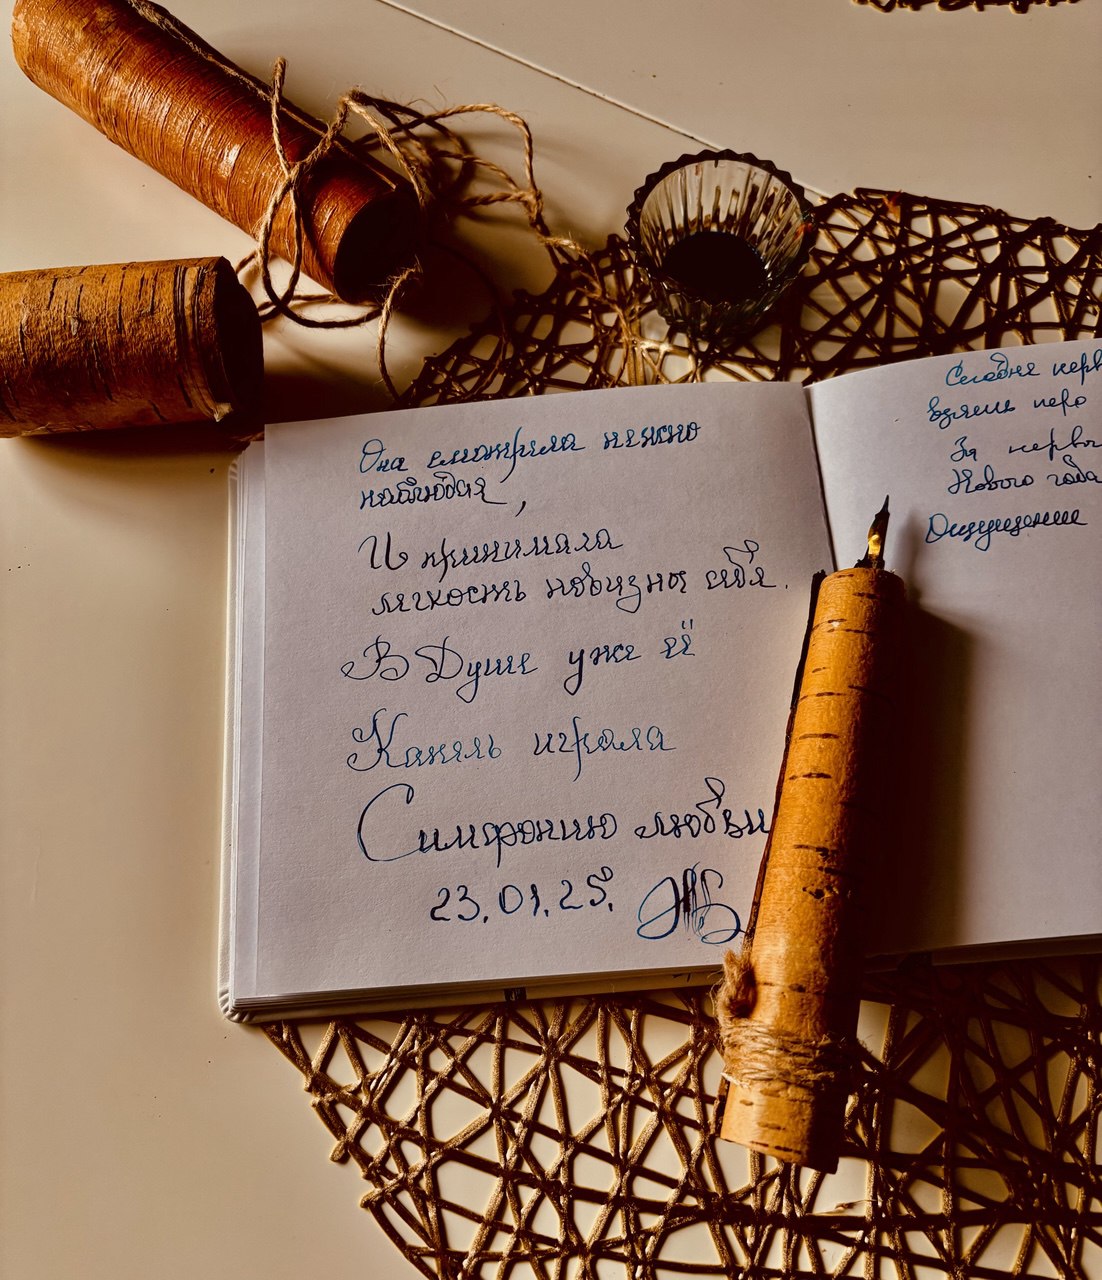 Она смотрела нежно
наблюдая,
И принимала
легкость новизны себя.
В Душе уже её
Капель играла
Симфонию любви
23.01.25.
Сегодня перв
взяли перо
За первы
Нового года
Ощущение